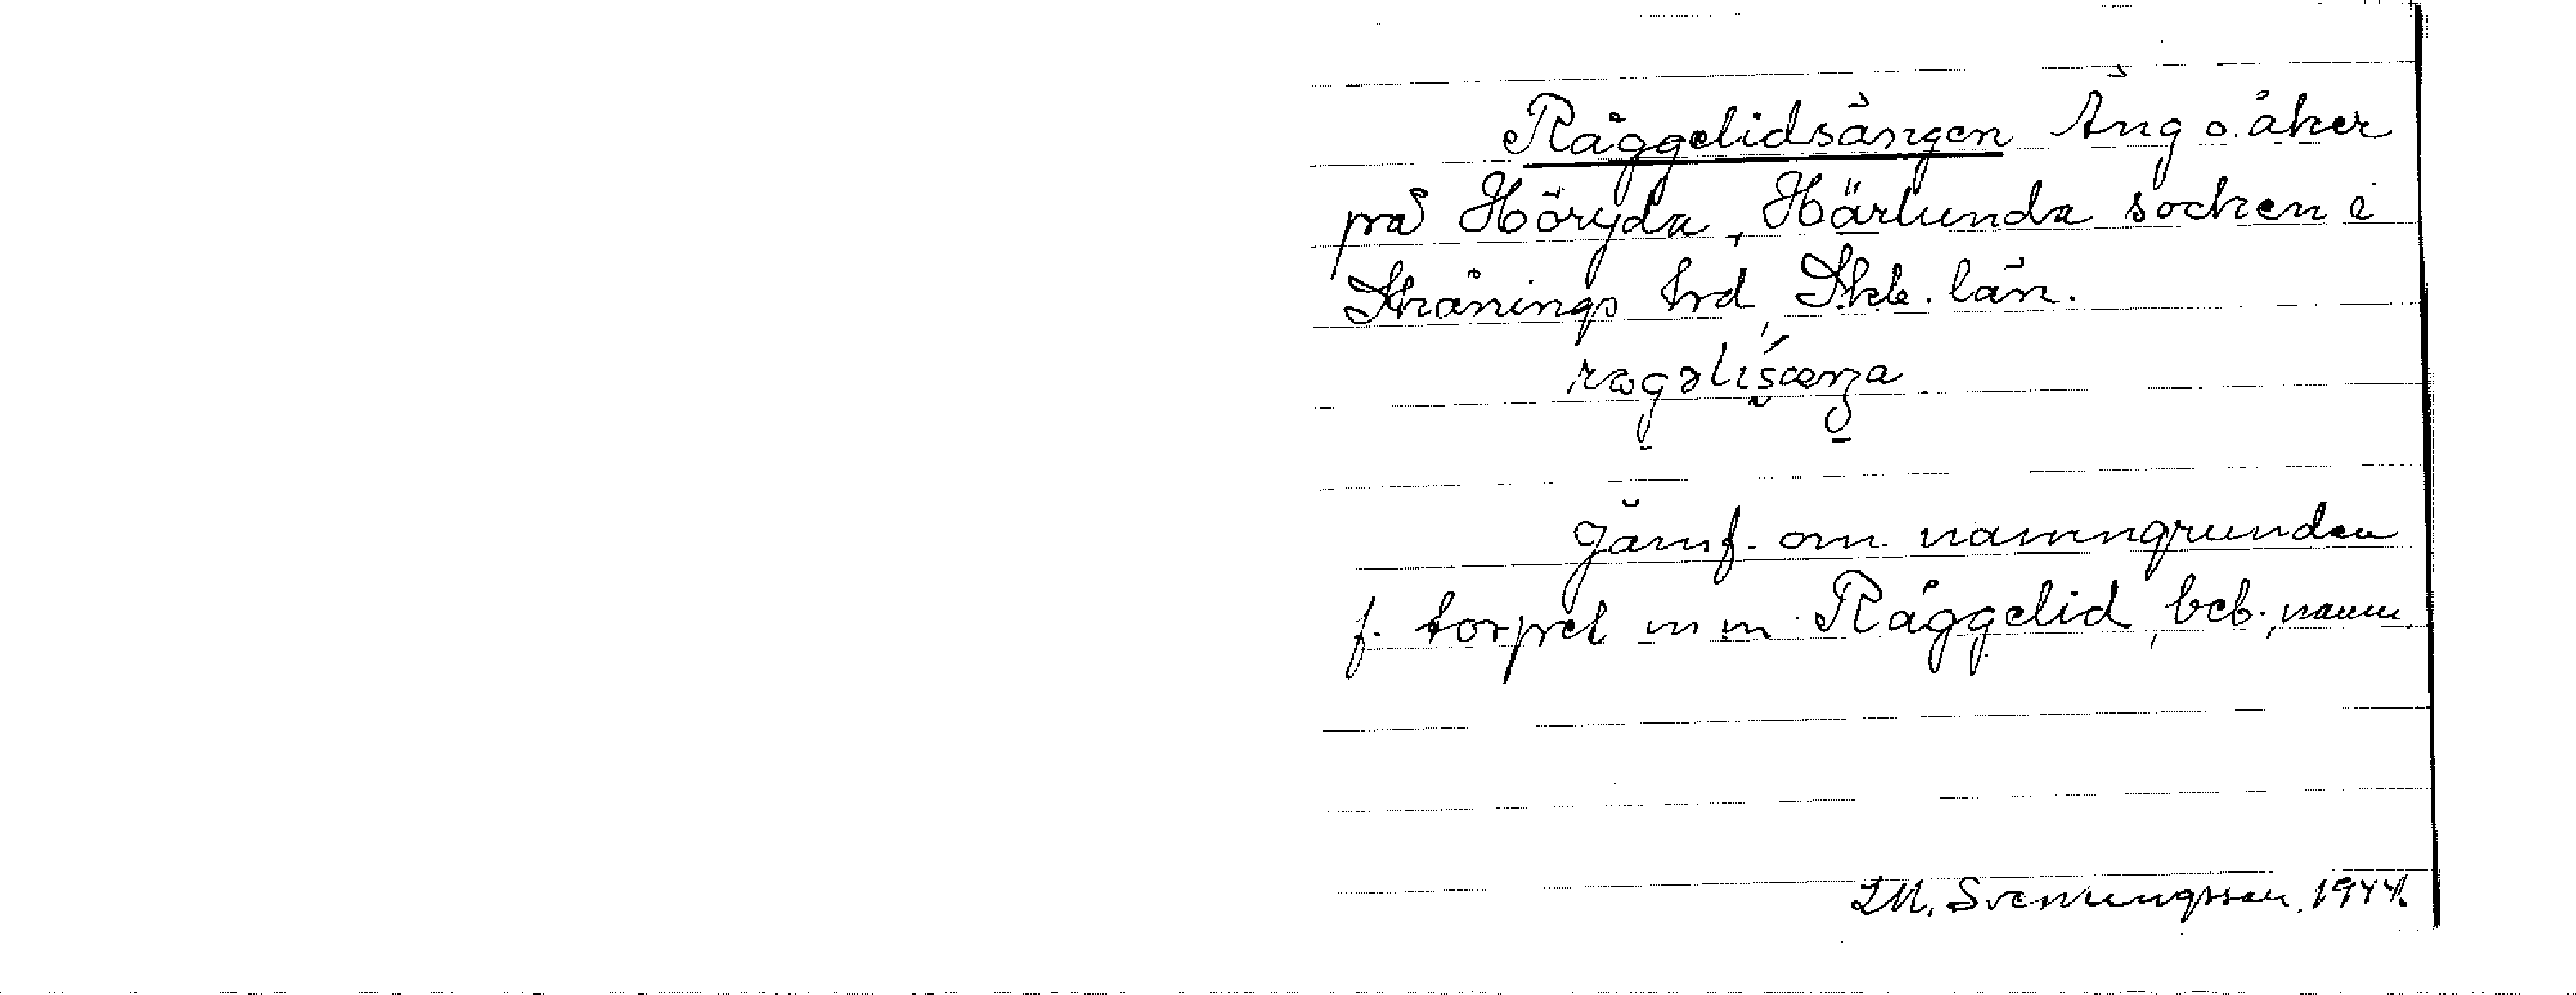 Räggelidsängen Äng o. åker
på Höryda, Härlunda socken i
Skånings hrd, Skb. län.
Jämf. om namngrunden
f. torpet m m Räggelid, beb. namn.
L M. Svenungsson 1944.